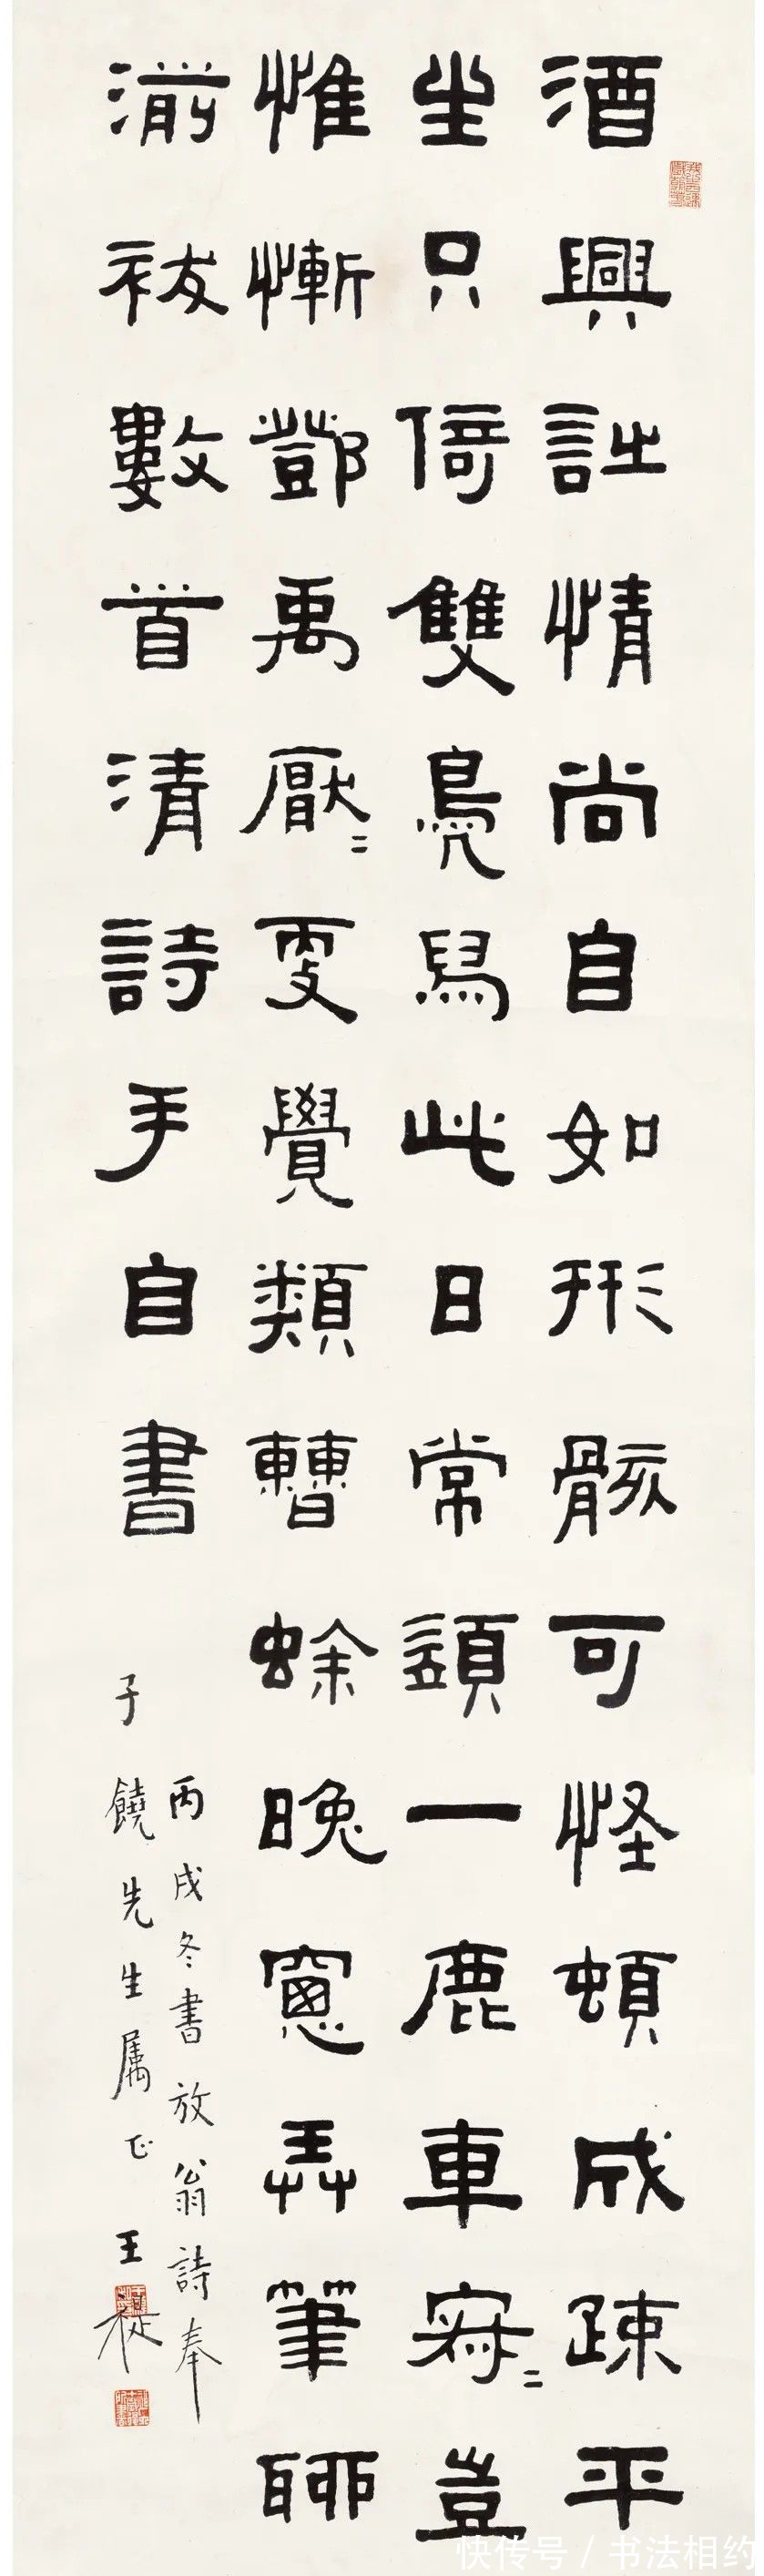 酒興詩情尚自如形骸可怪頓成疎平
生只倚雙鳧舄此日常須一鹿車寂〻豈
惟慚鄧禹厭〻更覺類曹蜍晚窗弄筆聊
湔祓數首清詩手自書
丙戌冬書放翁詩奉
子饒先生属正 王禔
快传号 / 书法相约